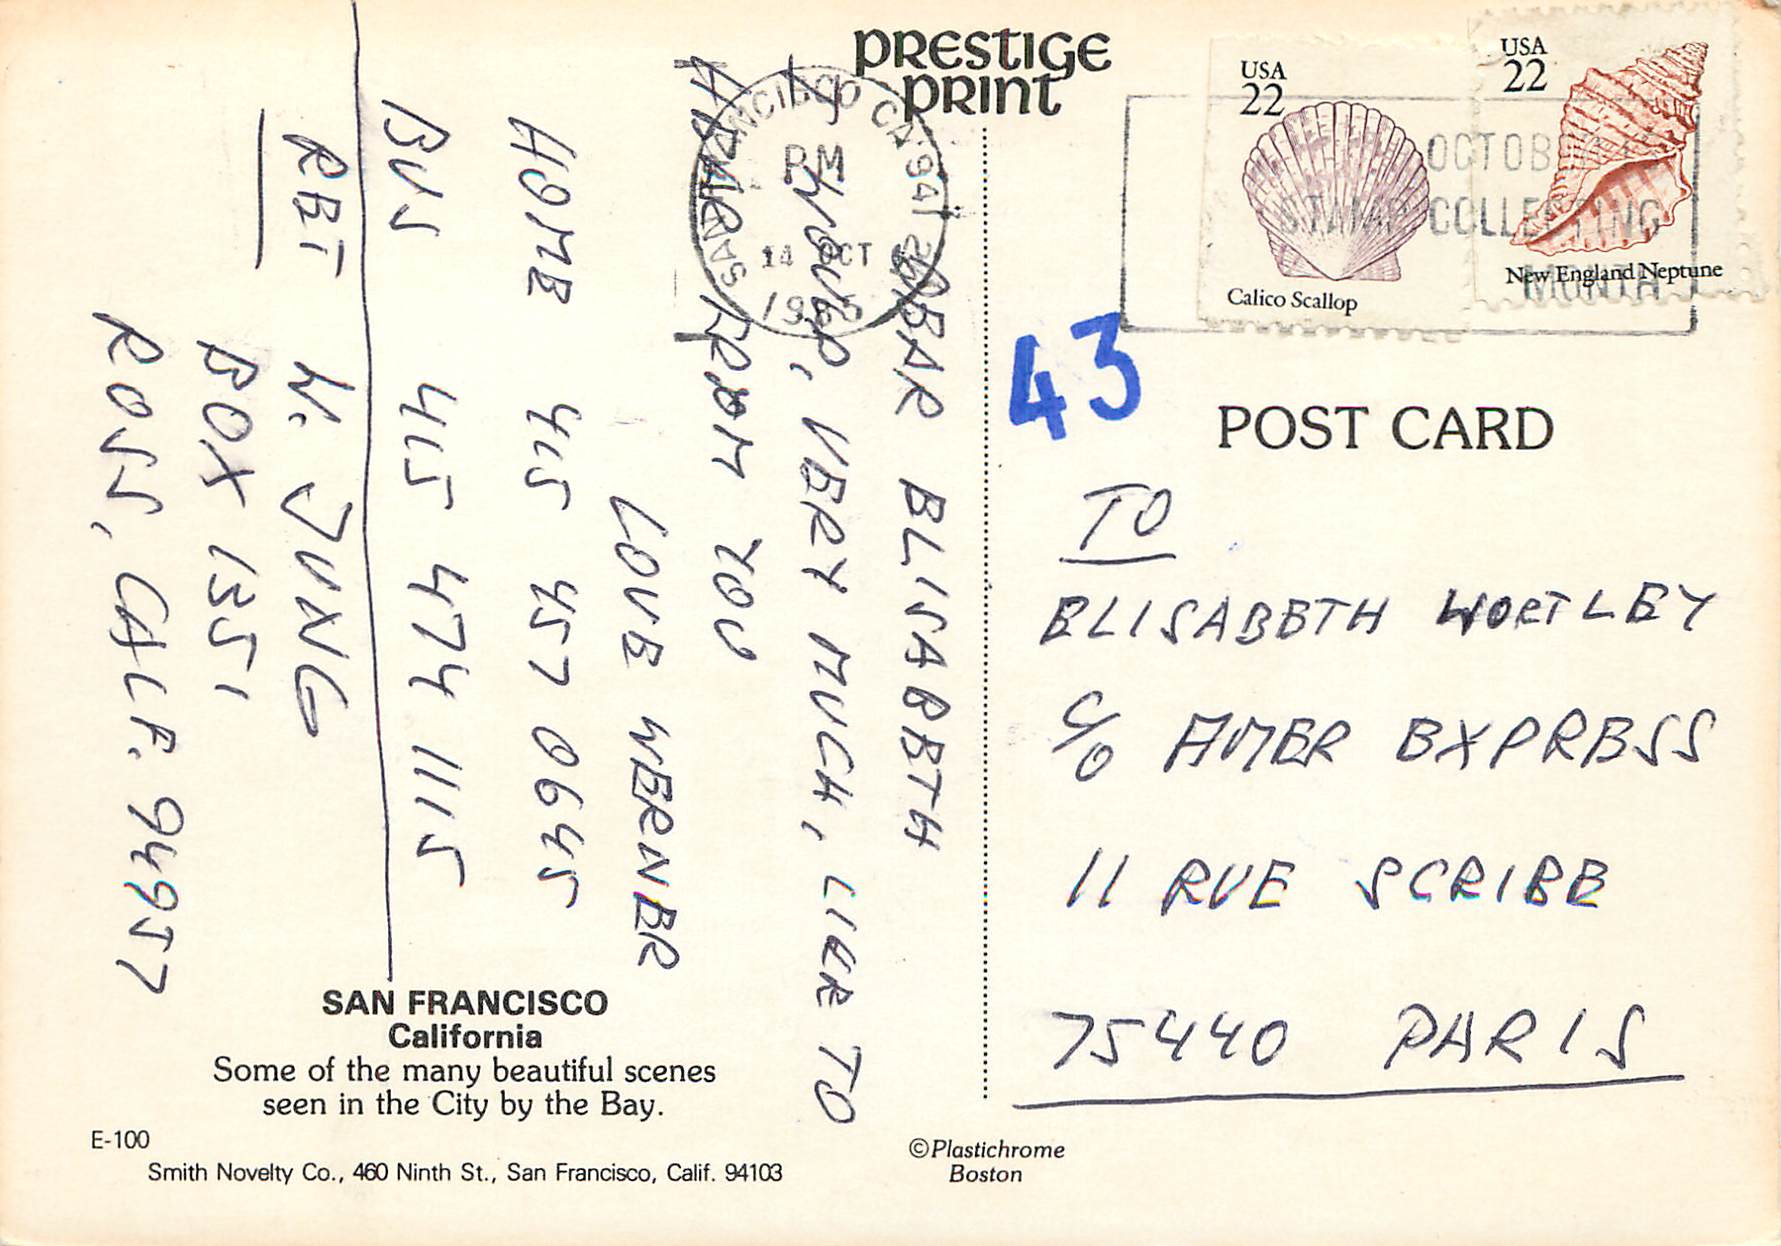 PRESTIGE
PRINT
USA
22
Calico Scallop
USA
22
New England Neptune
SAN FRANCISCO CA 941
PM
14 OCT
OCTOBER
STAMP COLLECTING
MONTH
43
POST CARD
TO
ELISABETH WORTLEY
C/O AMER EXPRESS
11 RUE SCRIBE
75440 PARIS
DEAR ELISABETH
HOWEVER, VERY MUCH, LIKE TO
HEAR FROM YOU
LOVE WERNER
HOME 415 457 0645
BUS 415 474 1115
RET W. JUNG
BOX 1351
ROSS, CALF. 94957
SAN FRANCISCO
California
Some of the many beautiful scenes
seen in the City by the Bay.
E-100
Smith Novelty Co., 460 Ninth St., San Francisco, Calif. 94103
©Plastichrome
Boston